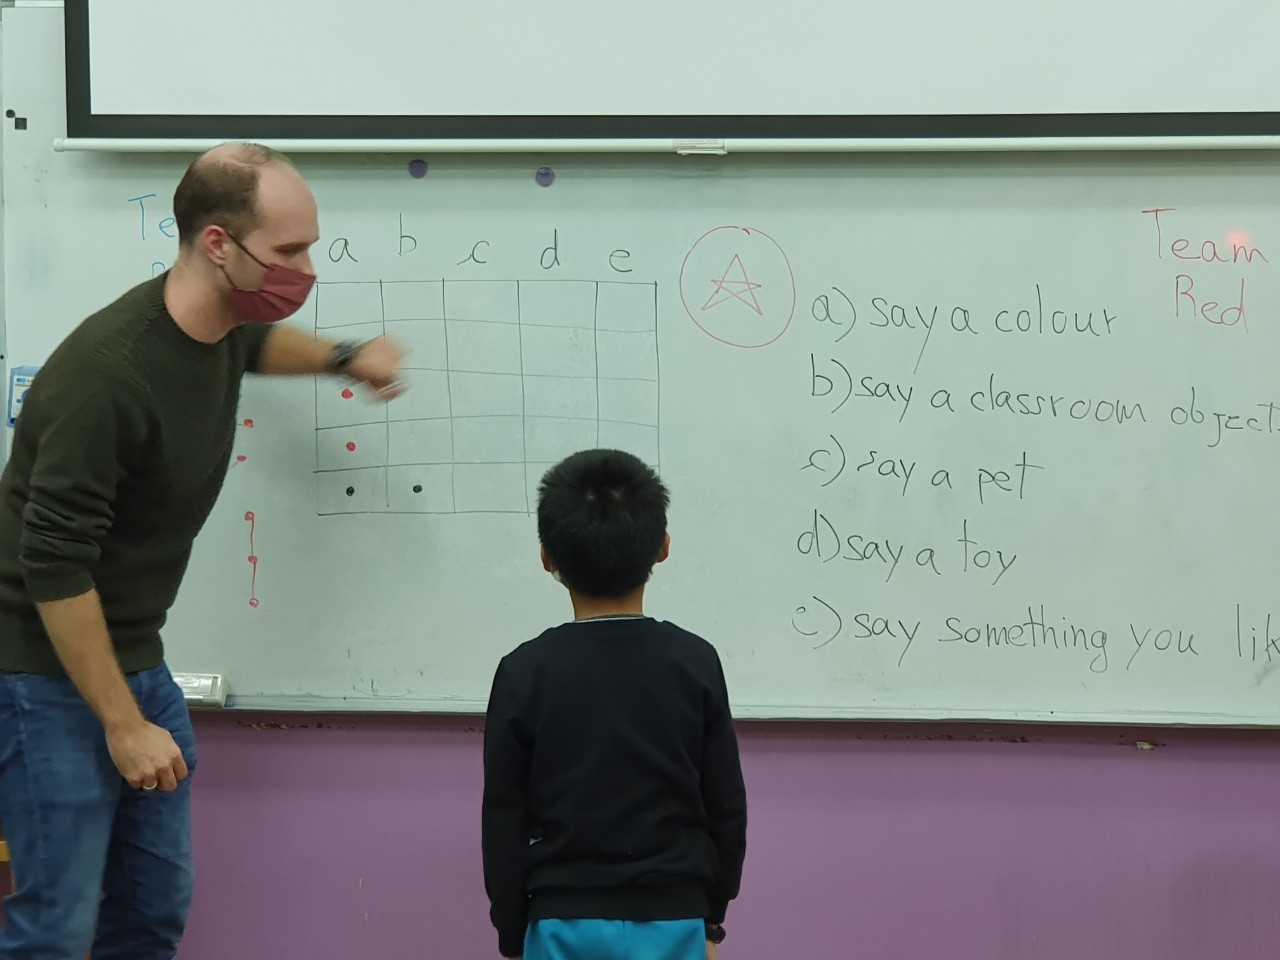 a b c d e
Team
Red
a) say a colour
b) say a classroom object
c) say a pet
d) say a toy
e) say something you